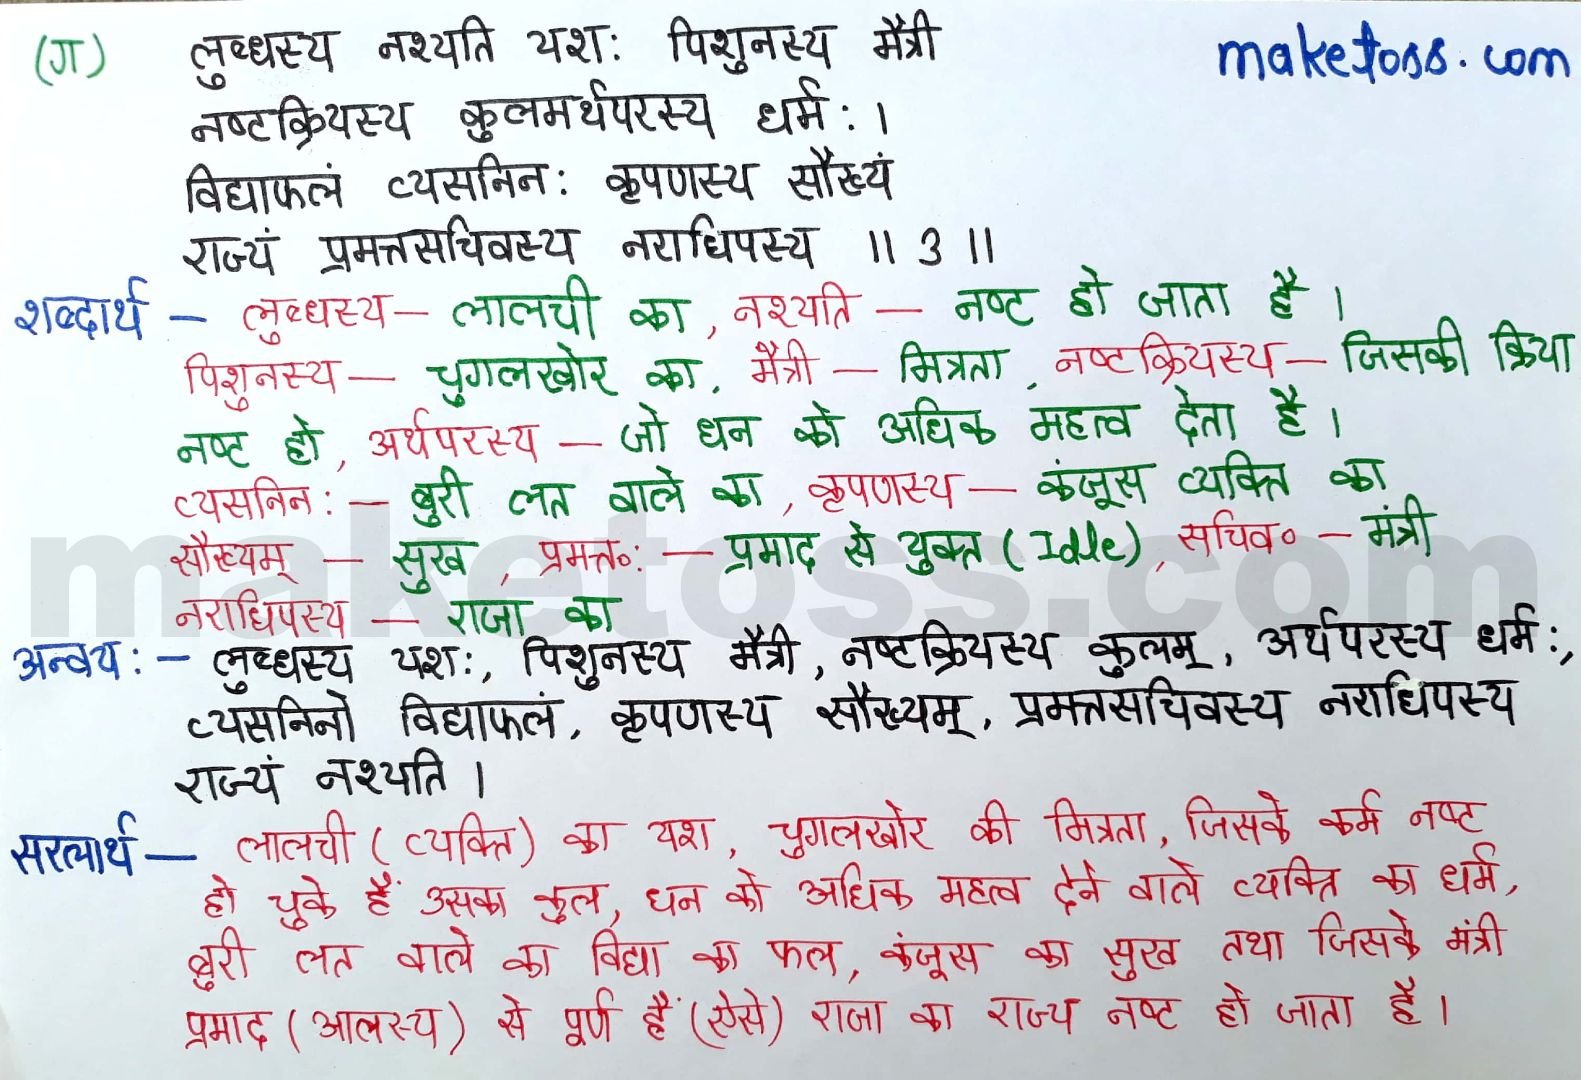 (ग) लुब्धस्य नश्यति यश: पिशुनस्य मैत्री
maketoss.com
नष्टक्रियस्य कुलमर्थपरस्य धर्म: ।
विद्याफलं व्यसनिन: कृपणस्य सौख्यं
राज्यं प्रमत्तसचिवस्य नराधिपस्य ॥ 3 ॥
शब्दार्थ – लुब्धस्य – लालची का, नश्यति – नष्ट हो जाता है ।
पिशुनस्य – चुगलखोर का, मैत्री – मित्रता, नष्टक्रियस्य – जिसकी क्रिया
नष्ट हो, अर्थपरस्य – जो धन को अधिक महत्व देता है ।
व्यसनिन: – बुरी लत वाले का, कृपणस्य – कंजूस व्यक्ति का
सौख्यम् – सुख, प्रमत्त०: – प्रमाद से युक्त (Idle), सचिव० – मंत्री
नराधिपस्य – राजा का
अन्वय: – लुब्धस्य यश:, पिशुनस्य मैत्री, नष्टक्रियस्य कुलम्, अर्थपरस्य धर्म:,
व्यसनिनो विद्याफलं, कृपणस्य सौख्यम्, प्रमत्तसचिवस्य नराधिपस्य
राज्यं नश्यति ।
सरलार्थ – लालची (व्यक्ति) का यश, चुगलखोर की मित्रता, जिसके कर्म नष्ट
हो चुके हैं उसका कुल, धन को अधिक महत्व देने वाले व्यक्ति का धर्म,
बुरी लत वाले का विद्या का फल, कंजूस का सुख तथा जिसके मंत्री
प्रमाद (आलस्य) से पूर्ण हैं (ऐसे) राजा का राज्य नष्ट हो जाता है ।
maketoss.com